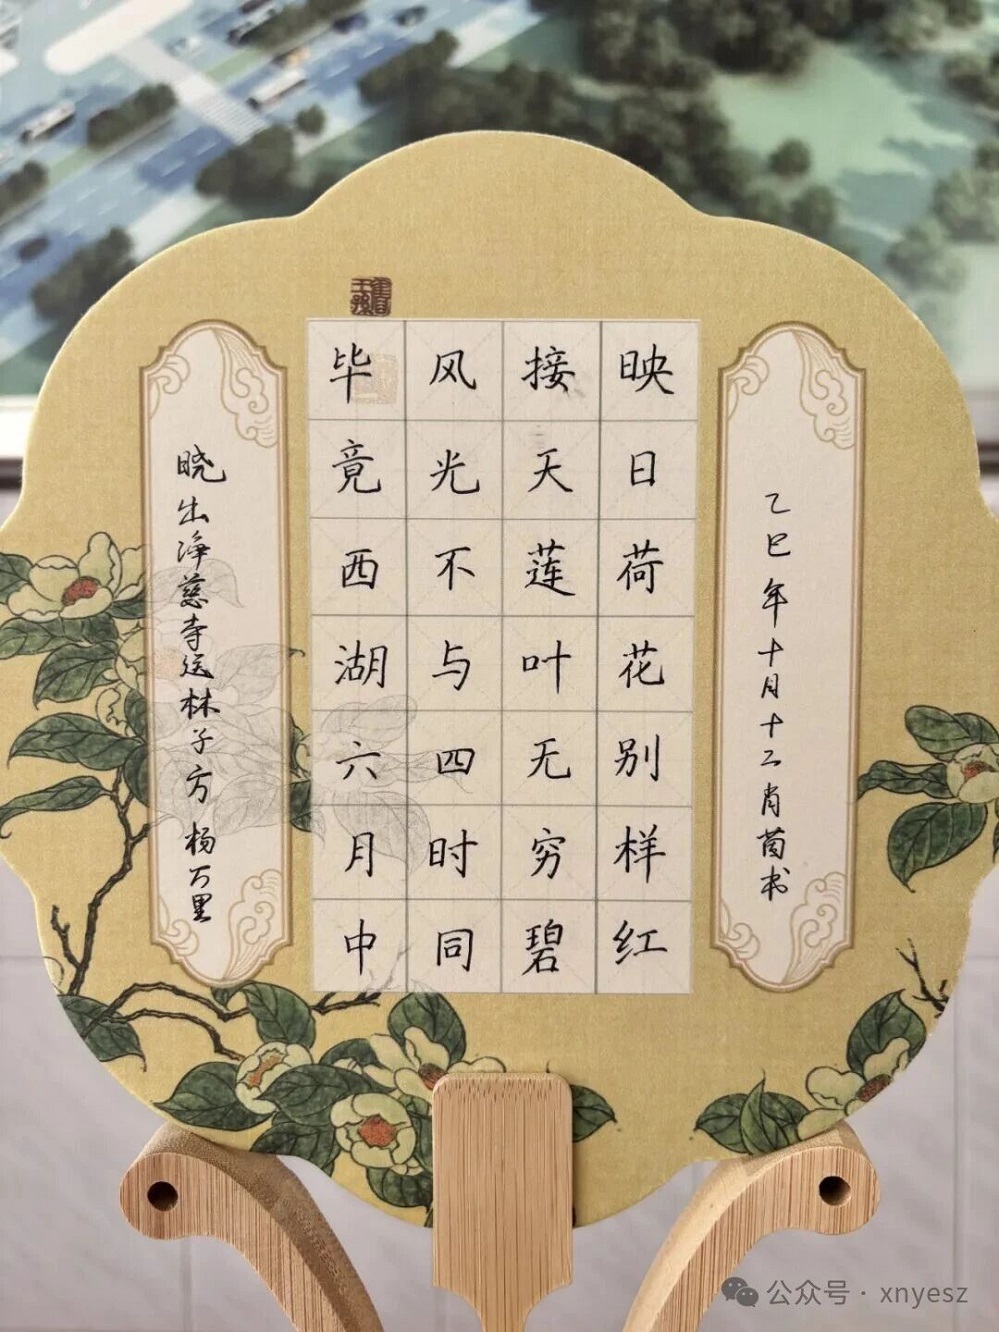 晓出净慈寺送林子方 杨万里
毕竟西湖六月中
风光不与四时同
接天莲叶无穷碧
映日荷花别样红
乙巳年十月十二肖茵书
公众号 · xnyesz